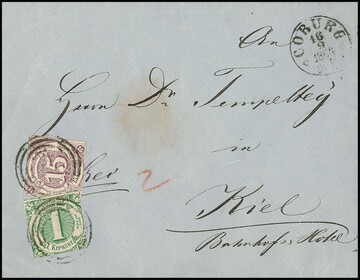 COBURG
16
9
An
Herrn Dr. Tempeltey
in
frei
2
Kiel
Bahnhofs Hotel
15
1
Kreuzer